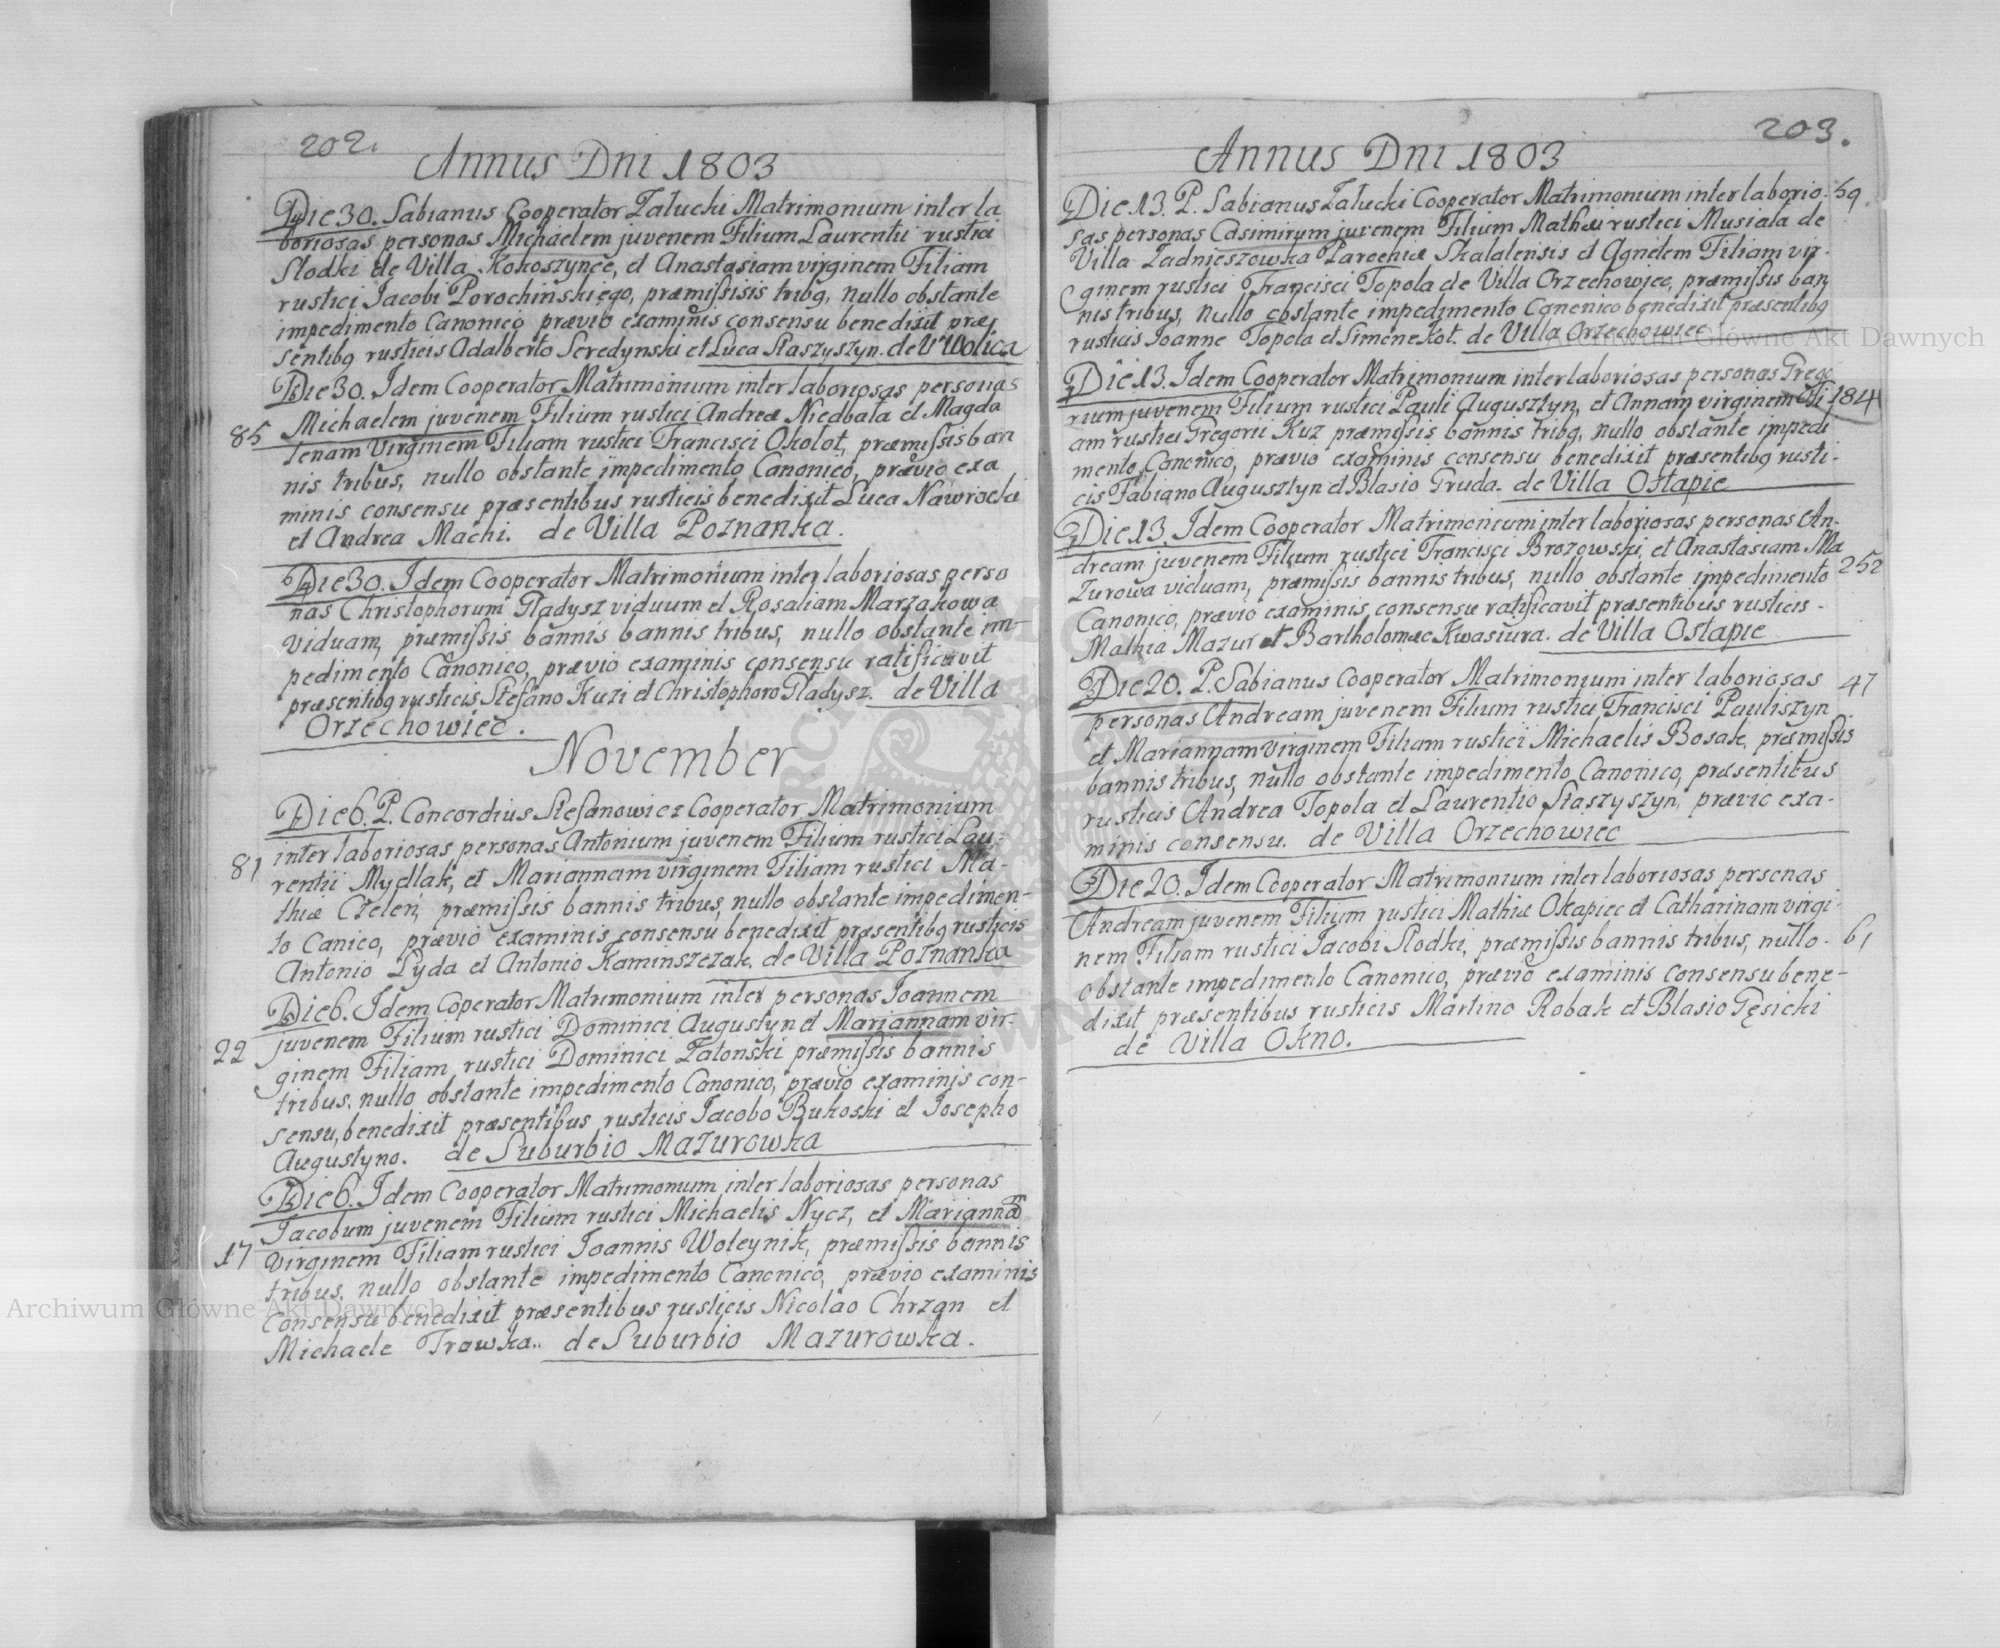 202.
Annus Dni 1803
Die 30. Sabianus Cooperator Załucki Matrimonium inter la
boriosas personas Michaelem juvenem Filium Laurentii rustici
Slodki de Villa Kokoszynce, et Anastasiam virginem Filiam
rustici Jacobi Porochinskiego, præmissisis tribq, nullo obstante
impedimento Canonico prævio examinis consensu benedixit præ
sentibq rusticis Adalberto Seredynski et Luca Staszyszyn. de V Wolica
Die 30. Idem Cooperator Matrimonium inter laboriosas personas
Michaelem juvenem Filium rustici Andreæ Niedbała et Magda
85
lenam Virginem Filiam rustici Francisci Okolot, præmissis ban
nis tribus, nullo obstante impedimento Canonico, prævio exa
minis consensu præsentibus rusticis benedixit Luca Nawrocki
et Andrea Machi. de Villa Poznanka.
Die 30. Idem Cooperator Matrimonium inter laboriosas perso
nas Christophorum Gładysz viduum et Rosaliam Marzakowa
Viduam, præmissis bannis bannis tribus, nullo obstante im-
pedimento Canonico, prævio examinis consensu ratificavit
præsentibq rusticis Stefano Kuzi et Christophoro Gładysz. de Villa
Orzechowiec.
November
Die 6. P. Concordius Stefanowicz Cooperator Matrimonium
inter laboriosas personas Antonium juvenem Filium rustici Lau-
81
rentii Mydlak, et Mariannam virginem Filiam rustici Ma-
thiæ Czelen, præmissis bannis tribus, nullo obstante impedimen-
to Canico, prævio examinis consensu benedixit præsentibq rusticis
Antonio Lyda et Antonio Kaminszczak. de Villa Poznanka
Die 6. Idem Coperator Matrimonium inter personas Joannem
juvenem Filium rustici Dominici Augustyn et Mariannam vir-
22
ginem Filiam rustici Dominici Zatonski præmissis bannis
tribus, nullo obstante impedimento Canonico, prævio examinis con-
sensu, benedixit præsentibus rusticis Jacobo Bukoski et Josepho
Augustyno. de Suburbio Mazurowka
Die 6. Idem Cooperator Matrimonium inter laboriosas personas
Jacobum juvenem Filium rustici Michaelis Nycz, et Mariannam
17
Virginem Filiam rustici Joannis Woleynik, præmissis bannis
tribus, nullo obstante impedimento Canonico, prævio examinis
consensu benedixit præsentibus rusticis Nicolao Chrzan et
Michaele Trawka.. de Suburbio Mazurowka.
203.
Annus Dni 1803
Die 13. P. Sabianus Załucki Cooperator Matrimonium inter laborio- 59.
sas personas Casimirum juvenem Filium Mathæi rustici Musiała de
Villa Zadnieszowka Parochiæ Skalatensis et Agnetem Filiam vir-
ginem rustici Francisci Topola de Villa Orzechowiec, præmissis ban
nis tribus, nullo obstante impedimento Canonico benedixit præsentibq
rusticis Joanne Topola et Simone Kot. de Villa Orzechowiec
Die 13. Idem Cooperator Matrimonium inter laboriosas personas Grego
rium juvenem Filium rustici Pauli Augusztyn, et Annam virginem Fili 184
am rustici Gregorii Kuz præmissis bannis tribq, nullo obstante impedi
mento Canonico, prævio examinis consensu benedixit præsentibq rusti-
cis Fabiano Augusztyn et Blasio Gruda. de Villa Ostapie
Die 13. Idem Cooperator Matrimonium inter laboriosas personas An-
dream juvenem Filium rustici Francisci Brozowski, et Anastasiam Ma 252
zurowa viduam, præmissis bannis tribus, nullo obstante impedimento
Canonico, prævio examinis, consensu ratificavit præsentibus rusticis
Mathia Mazur et Bartholomæo Kwasiura. de Villa Ostapie
Die 20. P. Sabianus Cooperator Matrimonium inter laboriosas 47
personas Andream juvenem Filium rustici Francisci Pauliszyn
et Mariannam virginem Filiam rustici Michaelis Bosak, præmissis
bannis tribus, nullo obstante impedimento Canonico, præsentibus
rusticis Andrea Topola et Laurentio Staszyszyn, prævio exa-
minis consensu. de Villa Orzechowiec
Die 20. Idem Cooperator Matrimonium inter laboriosas personas
Andream juvenem Filium rustici Mathiæ Okapiec et Catharinam virgi-
nem Filiam rustici Jacobi Slodki, præmissis bannis tribus, nullo 61
obstante impedimento Canonico, prævio examinis consensu bene-
dixit præsentibus rusticis Martino Robak et Blasio Gęsicki
de Villa Okno.
Archiwum Główne Akt Dawnych
Archiwum Główne Akt Dawnych